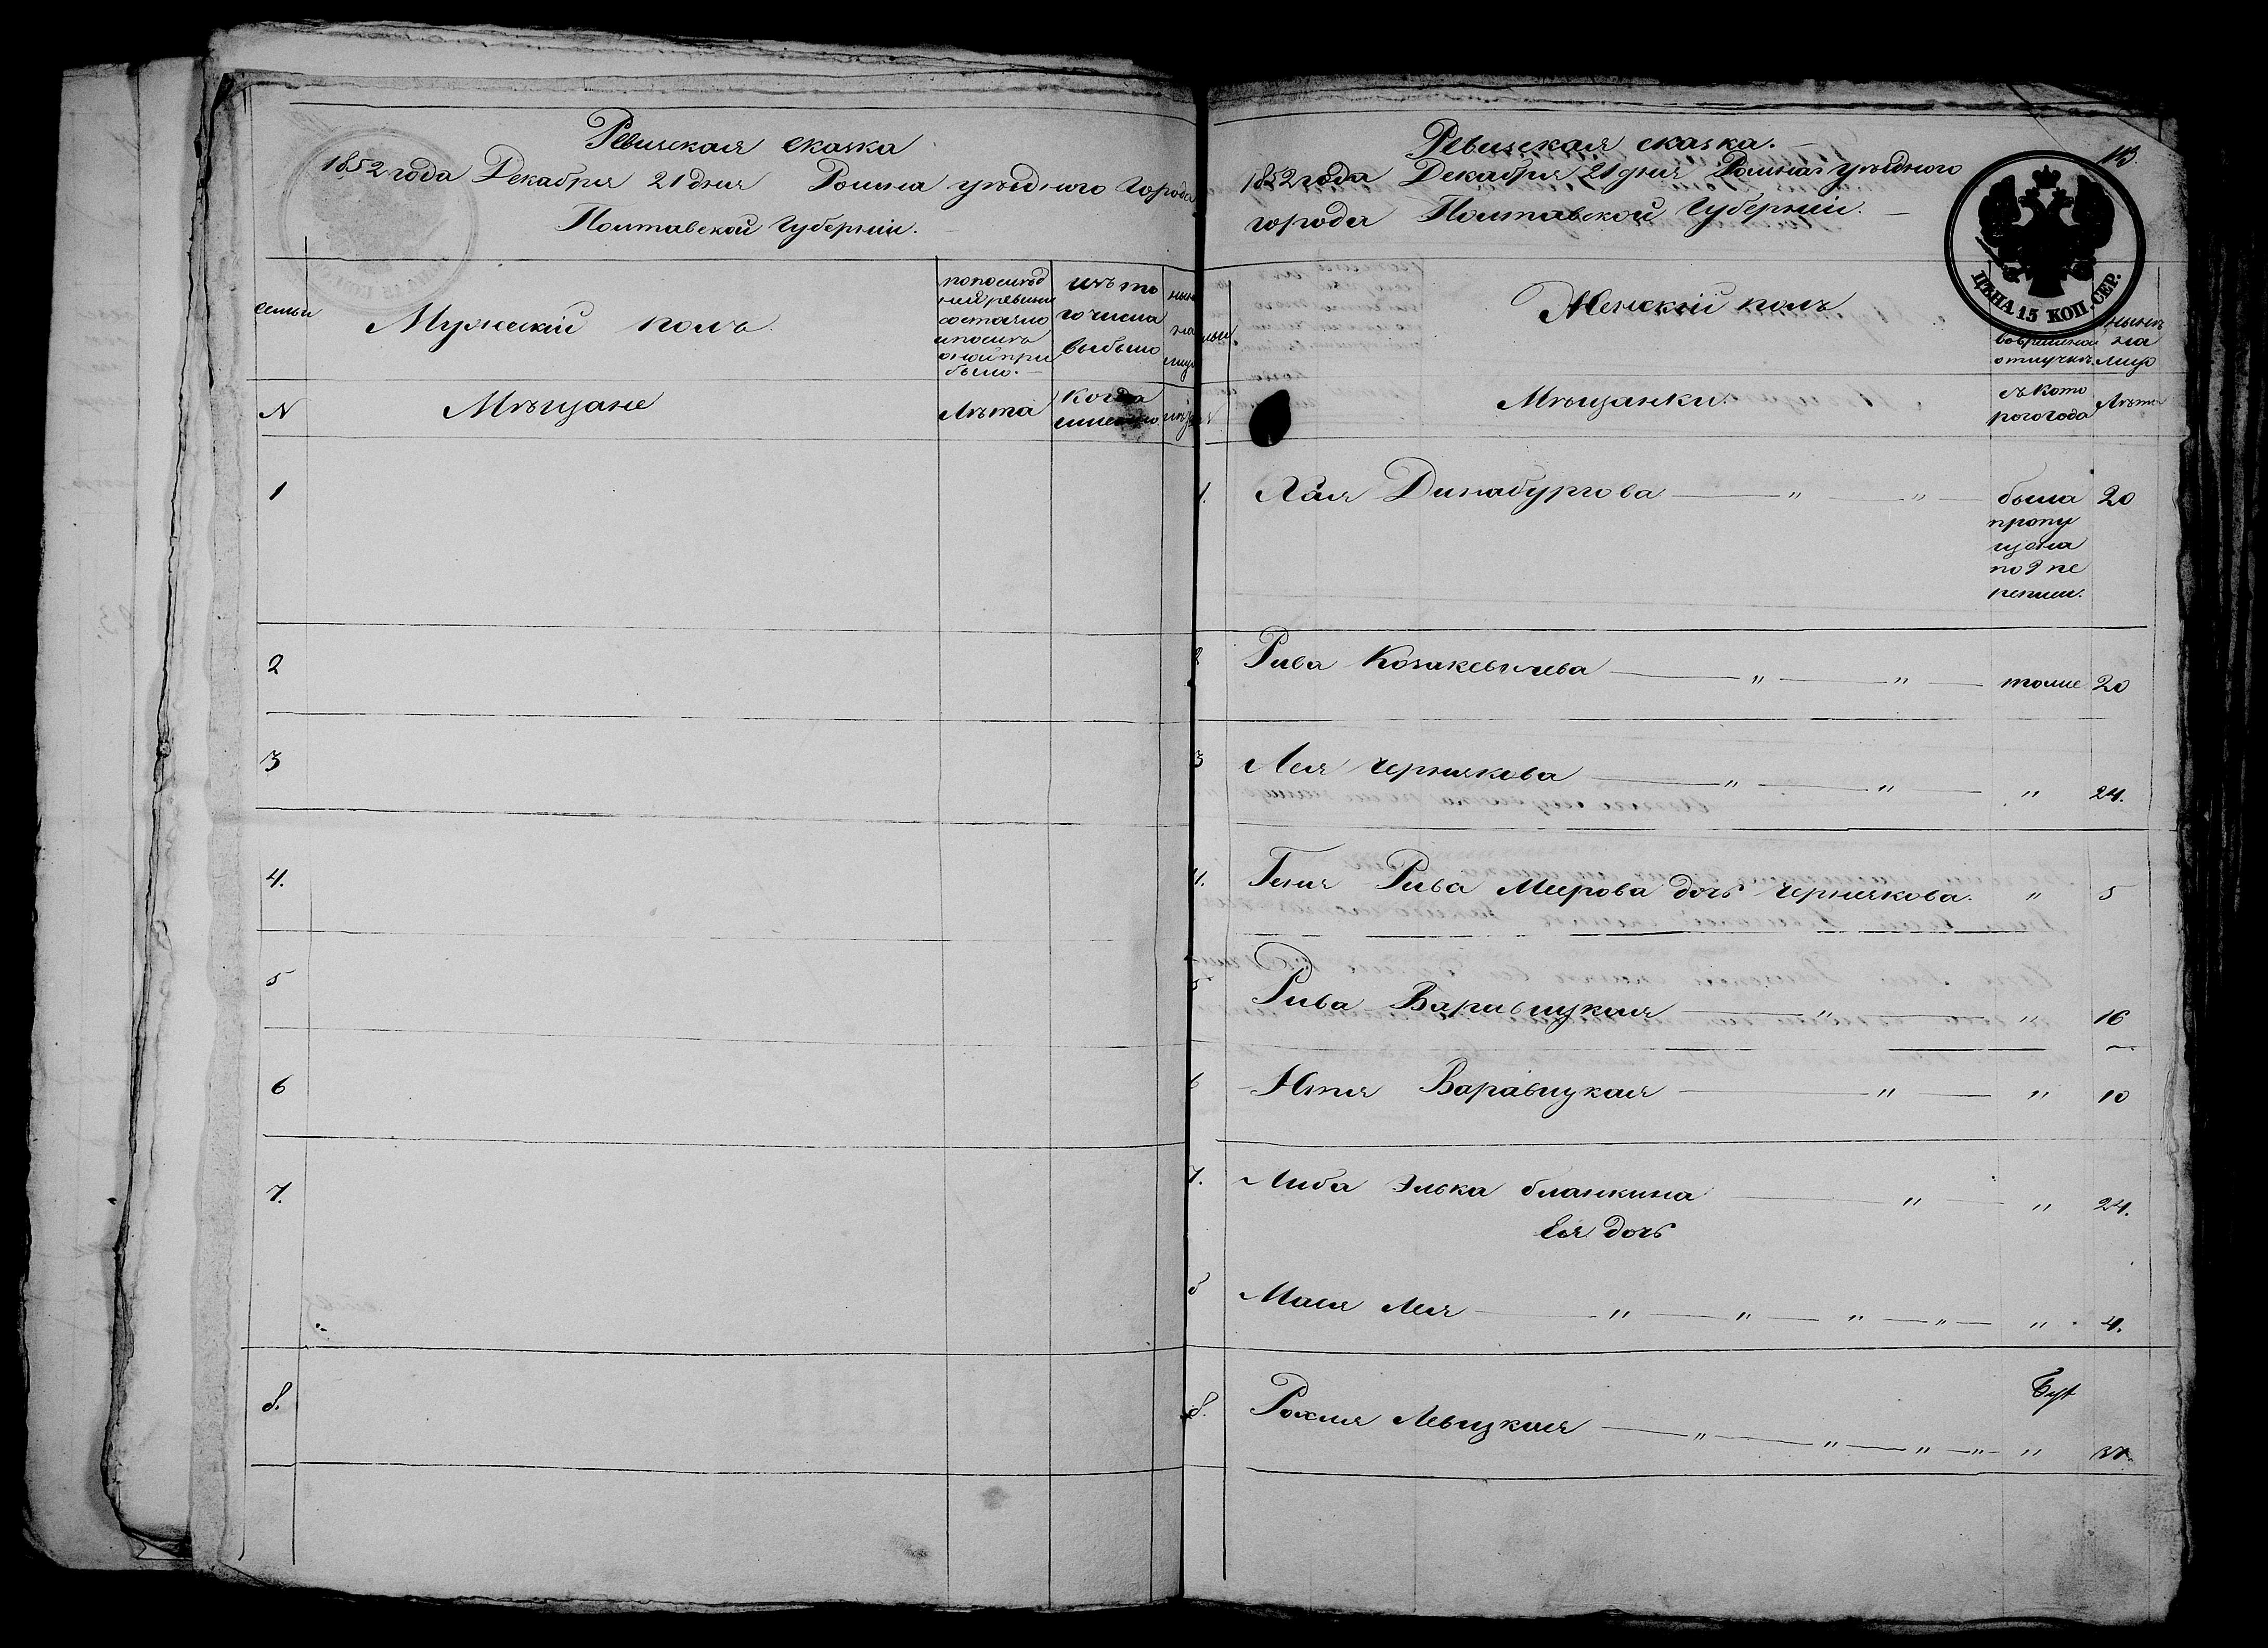 Ревизская сказка
1852 года Декабря 21 дня Ромна уѣзднаго города
Полтавской Губерніи.
семьи
Мужескій полъ
по послѣд
ней ревизіи
состояло
и послѣ
оной при
было.
изъ то
го числа
выбыло
нынѣ
на
лицо
N
Мѣщане
Лѣта
Когда
именно
1
2
3
4.
5
6
7.
8.
Ревизская сказка.
1852 года Декабря 21 дня Ромна уѣзднаго
города Полтавской Губерніи.
ЦѢНА 15 КОП. СЕР.
Женскій полъ
во временной
отлучкѣ
нынѣ
на
лицо
Мѣщанки.
съ кото
рого года
Лѣта
1. Хая Динабургова — " — " — была 20
пропу
щена
по 9 пе
реписи.
2 Рива Козакевичева — " — " — тоже 20
3 Лея Чернякова — " — " — " 24.
4. Геня Рива Меерова дочь Чернякова. " 5
5 Рива Варавицкая — " — " 16
6 Итя Варавицкая — " — " 10
7. Либа Элька Бланкина — " — " 24.
Ея дочь
Мася Лея — " — " — " — " — " 4.
8. Рохля Левицкая — " — " — " — " — "